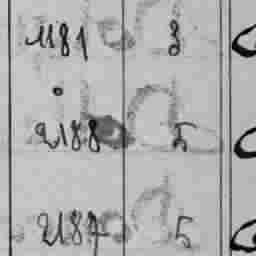 1181 3
2188 5
2187 5